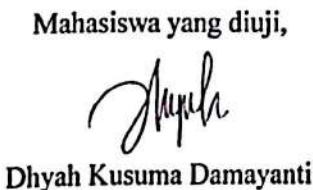 Mahasiswa yang diuji,
Dhyah Kusuma Damayanti